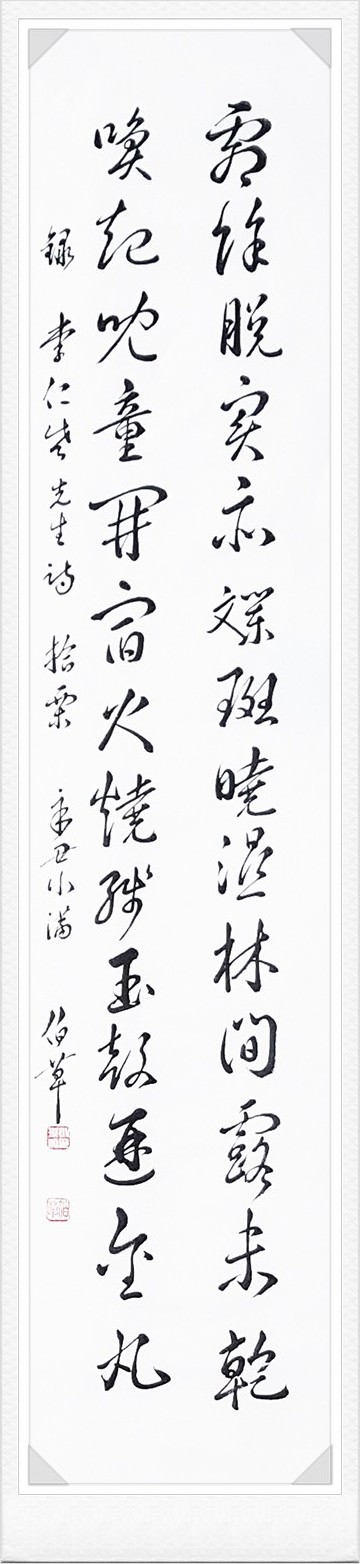 霜餘脫實亦斕斑曉濕林間露未乾
喚起兒童開宿火燒殘玉殼迸金丸
錄 李仁老先生詩 拾栗 辛丑小滿 伯草